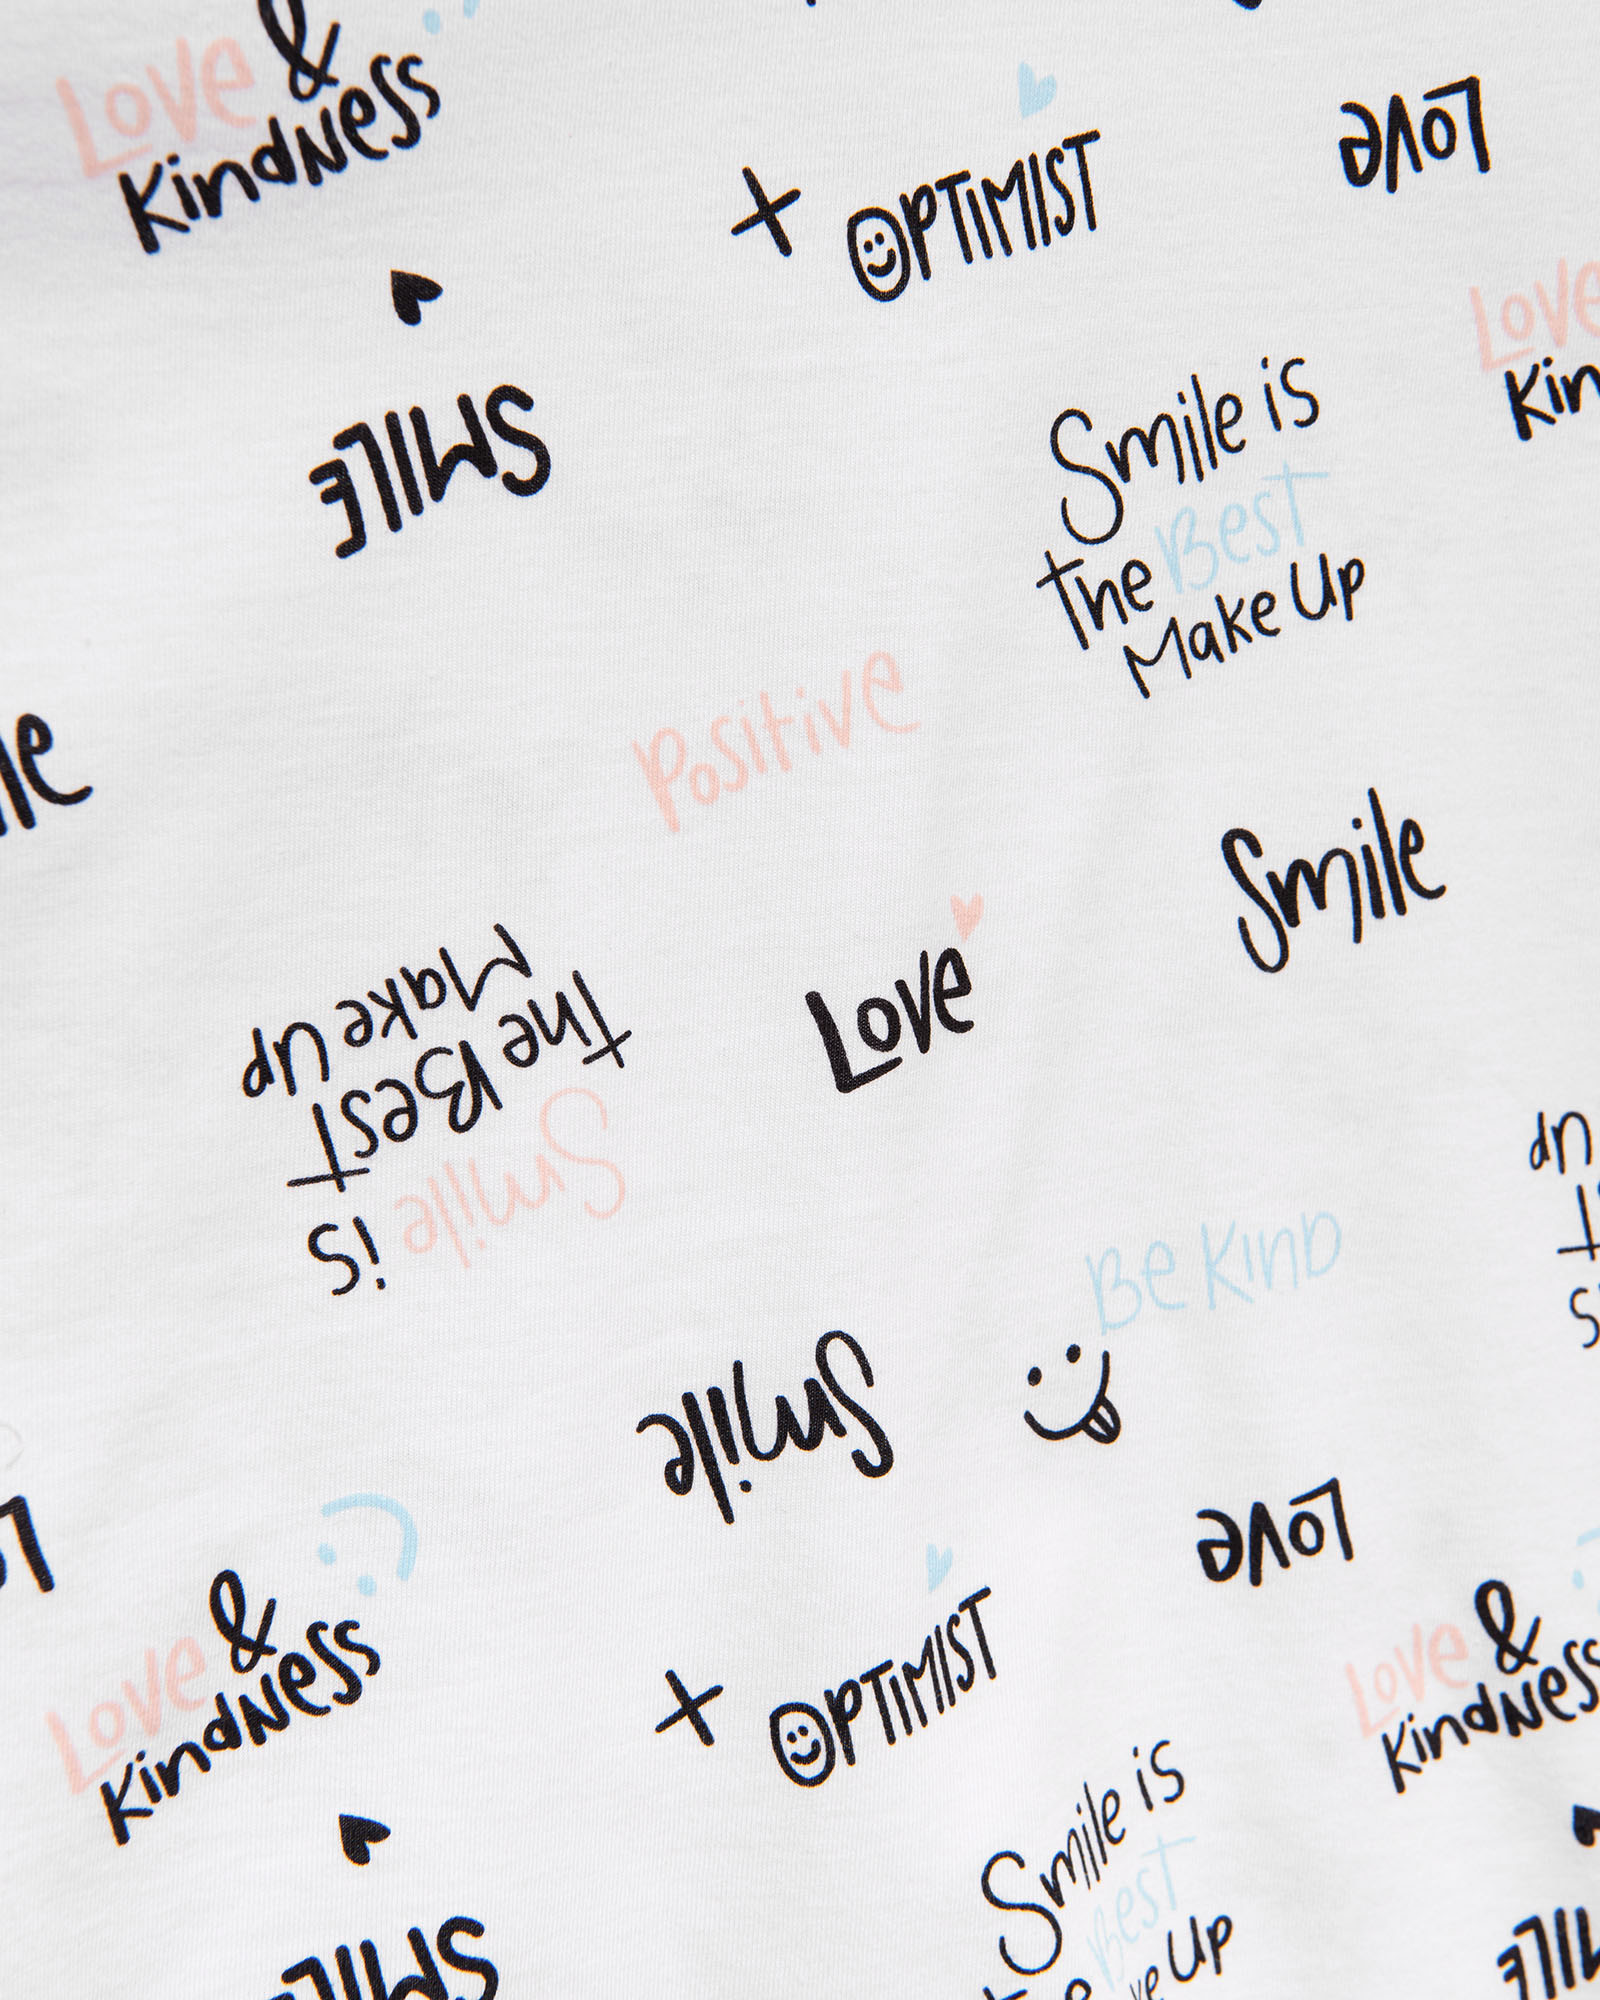 Love &
Kindness
+ OPTIMIST
Love
SMILE
Love
Kin
Smile is
the Best
Make Up
le
Positive
Smile
Love
Smile is
the Best
Make up
Be Kind
Up
Smile
Love
Love &
Kindness
+ OPTIMIST
Love &
Kindness
Smile is
Best
Up
SMILE